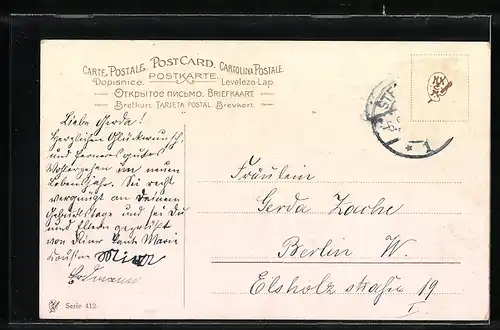 CARTE POSTALE. POSTCARD. CARTOLINA POSTALE.
Dopisnice. POSTKARTE. Levelezo-Lap
ОТКРЫТОЕ ПИСЬМО. BRIEFKAART.
Brefkort. TARJETA POSTAL. Brevkort.
Liebe Gerda!
Herzlichen Glückwunsch
und ferneres gutes
Wohlergehen im neuen
Lebensjahr. Sei recht
vergnügt an Deinem
Geburtstage und sei Du
und Eltern gegrüßt
von Tante Marie
Erdmann
Fräulein
Gerda Zache
Berlin W.
Elsholzstraße 19
I
Serie 412.